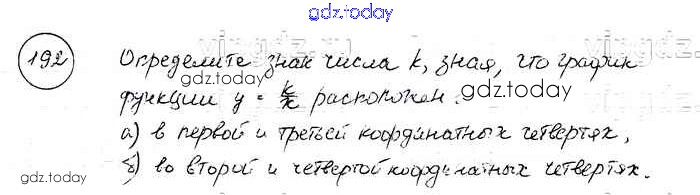 gdz.today
192 Определите знак числа k, зная, что график
gdz.today
gdz.today
функции y = k/x расположен:
а) в первой и третьей координатных четвертях,
б) во второй и четвертой координатных четвертях.
gdz.today